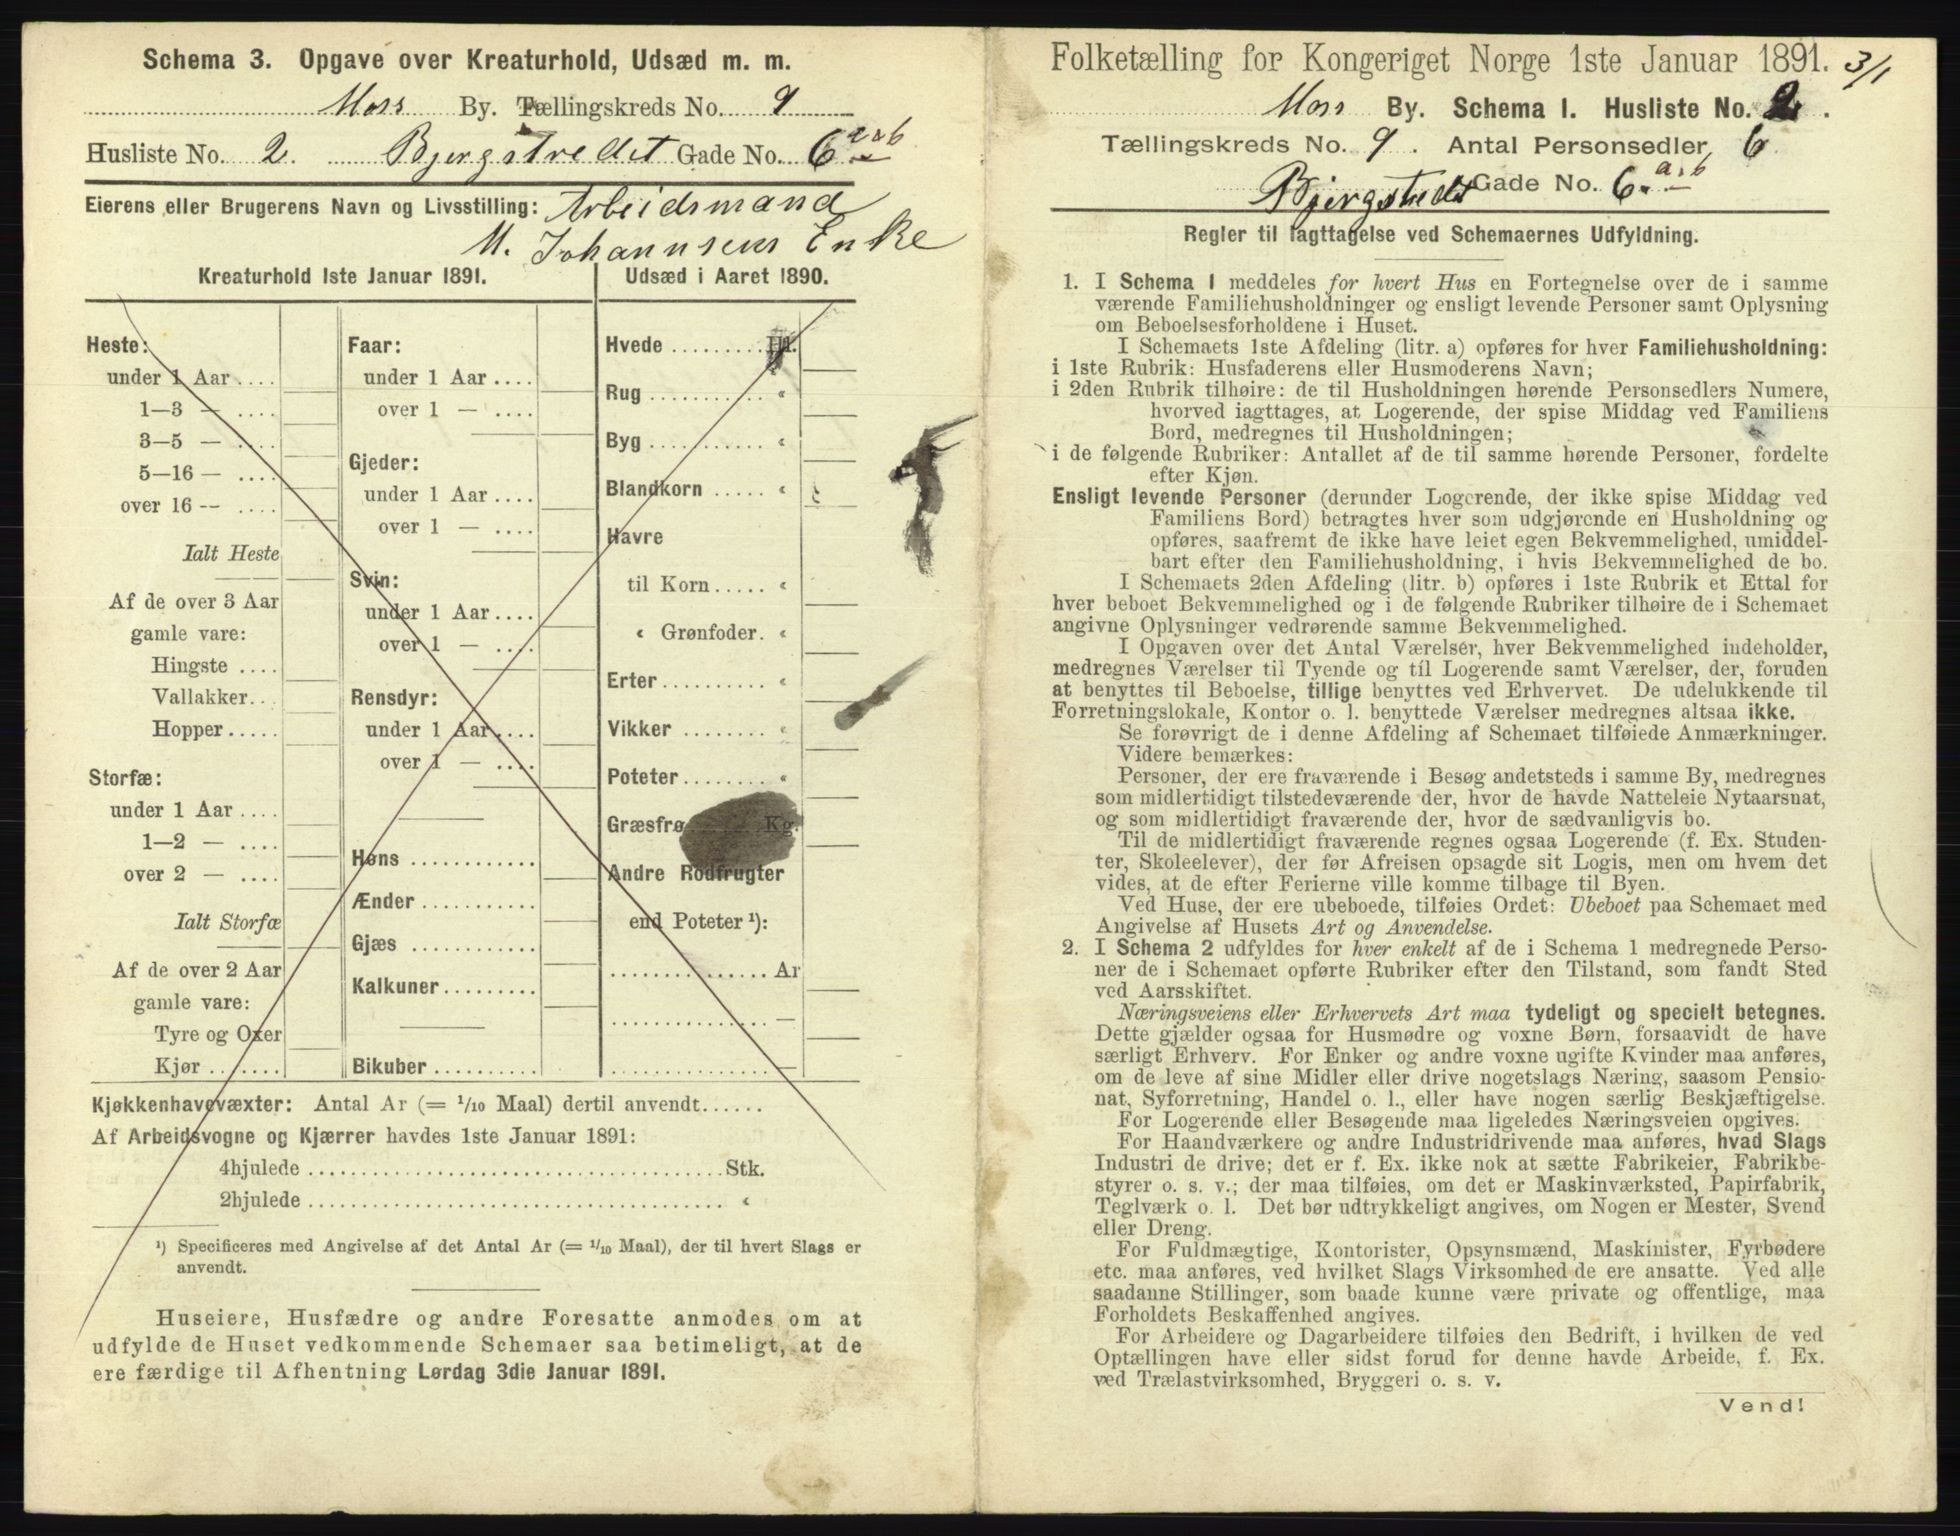 Schema 3. Opgave over Kreaturhold, Udsæd m. m.
Moss By. Tællingskreds No. 9
Husliste No. 2. Bjergstredet Gade No. 6 a & b
Eierens eller Brugerens Navn og Livsstilling: Arbeidsmand
M. Johannsens Enke
Kreaturhold 1ste Januar 1891.
Heste:
under 1 Aar ....
1—3 — ....
3—5 — ....
5—16 — ....
over 16 — ....
Ialt Heste
Af de over 3 Aar
gamle vare:
Hingste ....
Vallakker...
Hopper.....
Storfæ:
under 1 Aar ....
1—2 — ....
over 2 — ....
Ialt Storfæ
Af de over 2 Aar
gamle vare:
Tyre og Oxer
Kjør .......
Faar:
under 1 Aar ....
over 1 — ....
Gjeder:
under 1 Aar ....
over 1 — ....
Svin:
under 1 Aar ....
over 1 — ....
Rensdyr:
under 1 Aar ....
over 1 — ....
Høns ............
Ænder ...........
Gjæs ............
Kalkuner.........
Bikuber ..........
Udsæd i Aaret 1890.
Hvede ......... Hl.
Rug ........... «
Byg ........... «
Blandkorn ..... «
Havre
til Korn ..... «
« Grønfoder. «
Erter .......... «
Vikker ........ «
Poteter ........ «
Græsfrø ....... Kg.
Andre Rodfrugter
end Poteter ¹):
............... Ar
............... —
............... —
Kjøkkenhavevæxter: Antal Ar (= 1/10 Maal) dertil anvendt......
Af Arbeidsvogne og Kjærrer havdes 1ste Januar 1891:
4hjulede ........................................ Stk.
2hjulede ........................................ «
¹) Specificeres med Angivelse af det Antal Ar (= 1/10 Maal), der til hvert Slags er
anvendt.
Huseiere, Husfædre og andre Foresatte anmodes om at
udfylde de Huset vedkommende Schemaer saa betimeligt, at de
ere færdige til Afhentning Lørdag 3die Januar 1891.
Folketælling for Kongeriget Norge 1ste Januar 1891. 3/1
Moss By. Schema I. Husliste No. 2.
Tællingskreds No. 9. Antal Personsedler 6
Bjergstredet Gade No. 6. a & b
Regler til Iagttagelse ved Schemaernes Udfyldning.
1. I Schema I meddeles for hvert Hus en Fortegnelse over de i samme
værende Familiehusholdninger og ensligt levende Personer samt Oplysning
om Beboelsesforholdene i Huset.
I Schemaets 1ste Afdeling (litr. a) opføres for hver Familiehusholdning:
i 1ste Rubrik: Husfaderens eller Husmoderens Navn;
i 2den Rubrik tilhøire: de til Husholdningen hørende Personsedlers Numere,
hvorved iagttages, at Logerende, der spise Middag ved Familiens
Bord, medregnes til Husholdningen;
i de følgende Rubriker: Antallet af de til samme hørende Personer, fordelte
efter Kjøn.
Ensligt levende Personer (derunder Logerende, der ikke spise Middag ved
Familiens Bord) betragtes hver som udgjørende en Husholdning og
opføres, saafremt de ikke have leiet egen Bekvemmelighed, umiddel-
bart efter den Familiehusholdning, i hvis Bekvemmelighed de bo.
I Schemaets 2den Afdeling (litr. b) opføres i 1ste Rubrik et Ettal for
hver beboet Bekvemmelighed og i de følgende Rubriker tilhøire de i Schemaet
angivne Oplysninger vedrørende samme Bekvemmelighed.
I Opgaven over det Antal Værelser, hver Bekvemmelighed indeholder,
medregnes Værelser til Tyende og til Logerende samt Værelser, der, foruden
at benyttes til Beboelse, tillige benyttes ved Erhvervet. De udelukkende til
Forretningslokale, Kontor o. l. benyttede Værelser medregnes altsaa ikke.
Se forøvrigt de i denne Afdeling af Schemaet tilføiede Anmærkninger.
Videre bemærkes:
Personer, der ere fraværende i Besøg andetsteds i samme By, medregnes
som midlertidigt tilstedeværende der, hvor de havde Natteleie Nytaarsnat,
og som midlertidigt fraværende der, hvor de sædvanligvis bo.
Til de midlertidigt fraværende regnes ogsaa Logerende (f. Ex. Studen-
ter, Skoleelever), der før Afreisen opsagde sit Logis, men om hvem det
vides, at de efter Ferierne ville komme tilbage til Byen.
Ved Huse, der ere ubeboede, tilføies Ordet: Ubeboet paa Schemaet med
Angivelse af Husets Art og Anvendelse.
2. I Schema 2 udfyldes for hver enkelt af de i Schema 1 medregnede Perso-
ner de i Schemaet opførte Rubriker efter den Tilstand, som fandt Sted
ved Aarsskiftet.
Næringsveiens eller Erhvervets Art maa tydeligt og specielt betegnes.
Dette gjælder ogsaa for Husmødre og voxne Børn, forsaavidt de have
særligt Erhverv. For Enker og andre voxne ugifte Kvinder maa anføres,
om de leve af sine Midler eller drive nogetslags Næring, saasom Pensio-
nat, Syforretning, Handel o. l., eller have nogen særlig Beskjæftigelse.
For Logerende eller Besøgende maa ligeledes Næringsveien opgives.
For Haandværkere og andre Industridrivende maa anføres, hvad Slags
Industri de drive; det er f. Ex. ikke nok at sætte Fabrikeier, Fabrikbe-
styrer o. s. v.; der maa tilføies, om det er Maskinværksted, Papirfabrik,
Teglværk o. l. Det bør udtrykkeligt angives, om Nogen er Mester, Svend
eller Dreng.
For Fuldmægtige, Kontorister, Opsynsmænd, Maskinister, Fyrbødere
etc. maa anføres, ved hvilket Slags Virksomhed de ere ansatte. Ved alle
saadanne Stillinger, som baade kunne være private og offentlige, maa
Forholdets Beskaffenhed angives.
For Arbeidere og Dagarbeidere tilføies den Bedrift, i hvilken de ved
Optællingen have eller sidst forud for denne havde Arbeide, f. Ex.
ved Trælastvirksomhed, Bryggeri o. s. v.
Vend!